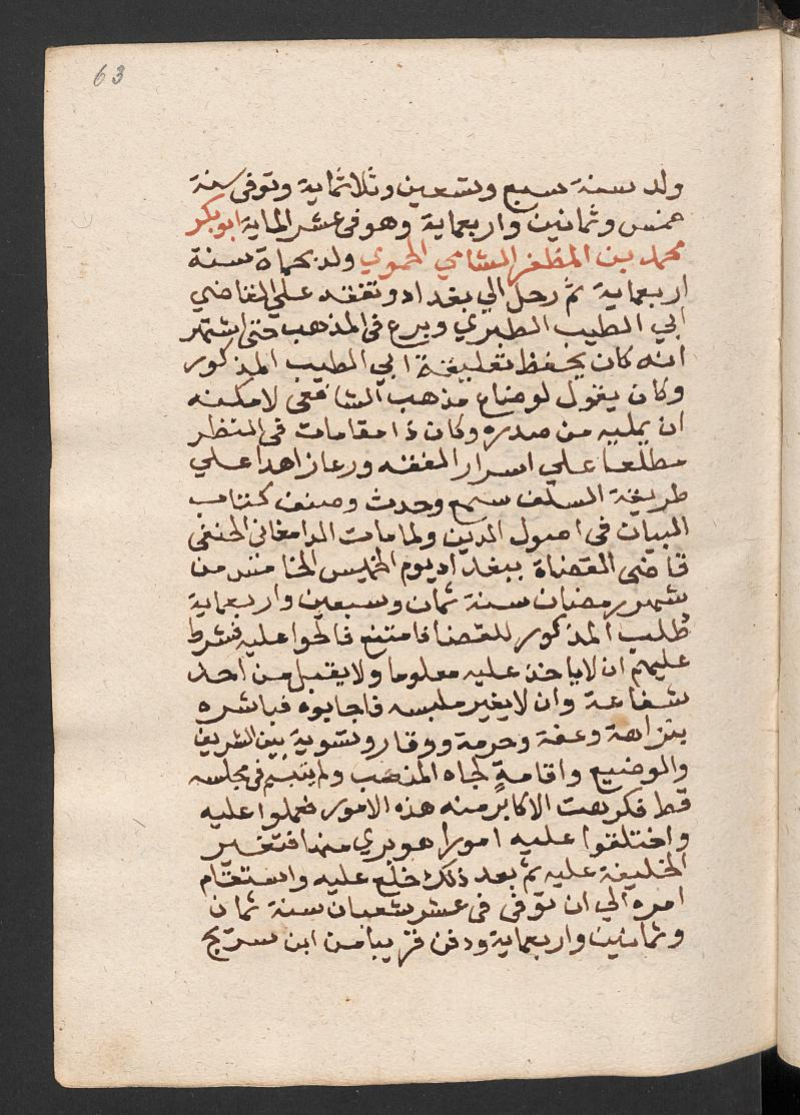 63
ولد سنة سبع وتسعين وثلاثماية وتوفى سنة
خمس وثمانين واربعماية وهو فى عشر الماية ابو بكر
محمد بن المظفر الشامي الحموي ولد بحماة سنة
اربعماية ثم رحل الي بغداد وتفقه علي القاضي
ابي الطيب الطبري وبرع فى المذهب حتى اشتهر
انه كان يحفظ تعليقة ابي الطيب المذكور
وكان يقول لو ضاع مذهب الشافعى لامكنه
ان يمليه من صدره وكان ذا مقامات فى النظر
مطلعا علي اسرار الفقه ورعا زاهدا علي
طريقة السلف سمع وحدث وصنف كتاب
البيان فى اصول الدين ولما مات الدامغانى الحنفى
قاضى القضاة ببغداد يوم الخميس الخامس من
شهر رمضان سنة ثمان وسبعين واربعماية
طلب المذكور للقضا فامتنع فالحوا عليه فشرط
عليهم ان لا ياخذ عليه معلوما ولا يقبل من احد
شفاعة وان لا يغير ملبسه فاجابوه فباشره
بنزاهة وعفة وحرمة ووقار وتسوية بين الشريف
والوضيع واقامة لجاه المنصب ولم يتبسم فى مجلسه
قط فكرهت الاكابر منه هذه الامور فحملوا عليه
واختلقوا عليه امورا هو بري منها فتغير
الخليفة عليه ثم بعد ذلك خلع عليه واستقام
امره الي ان توفى فى عشر شعبان سنة ثمان
وثمانين واربعماية ودفن قريبا من ابن سريج